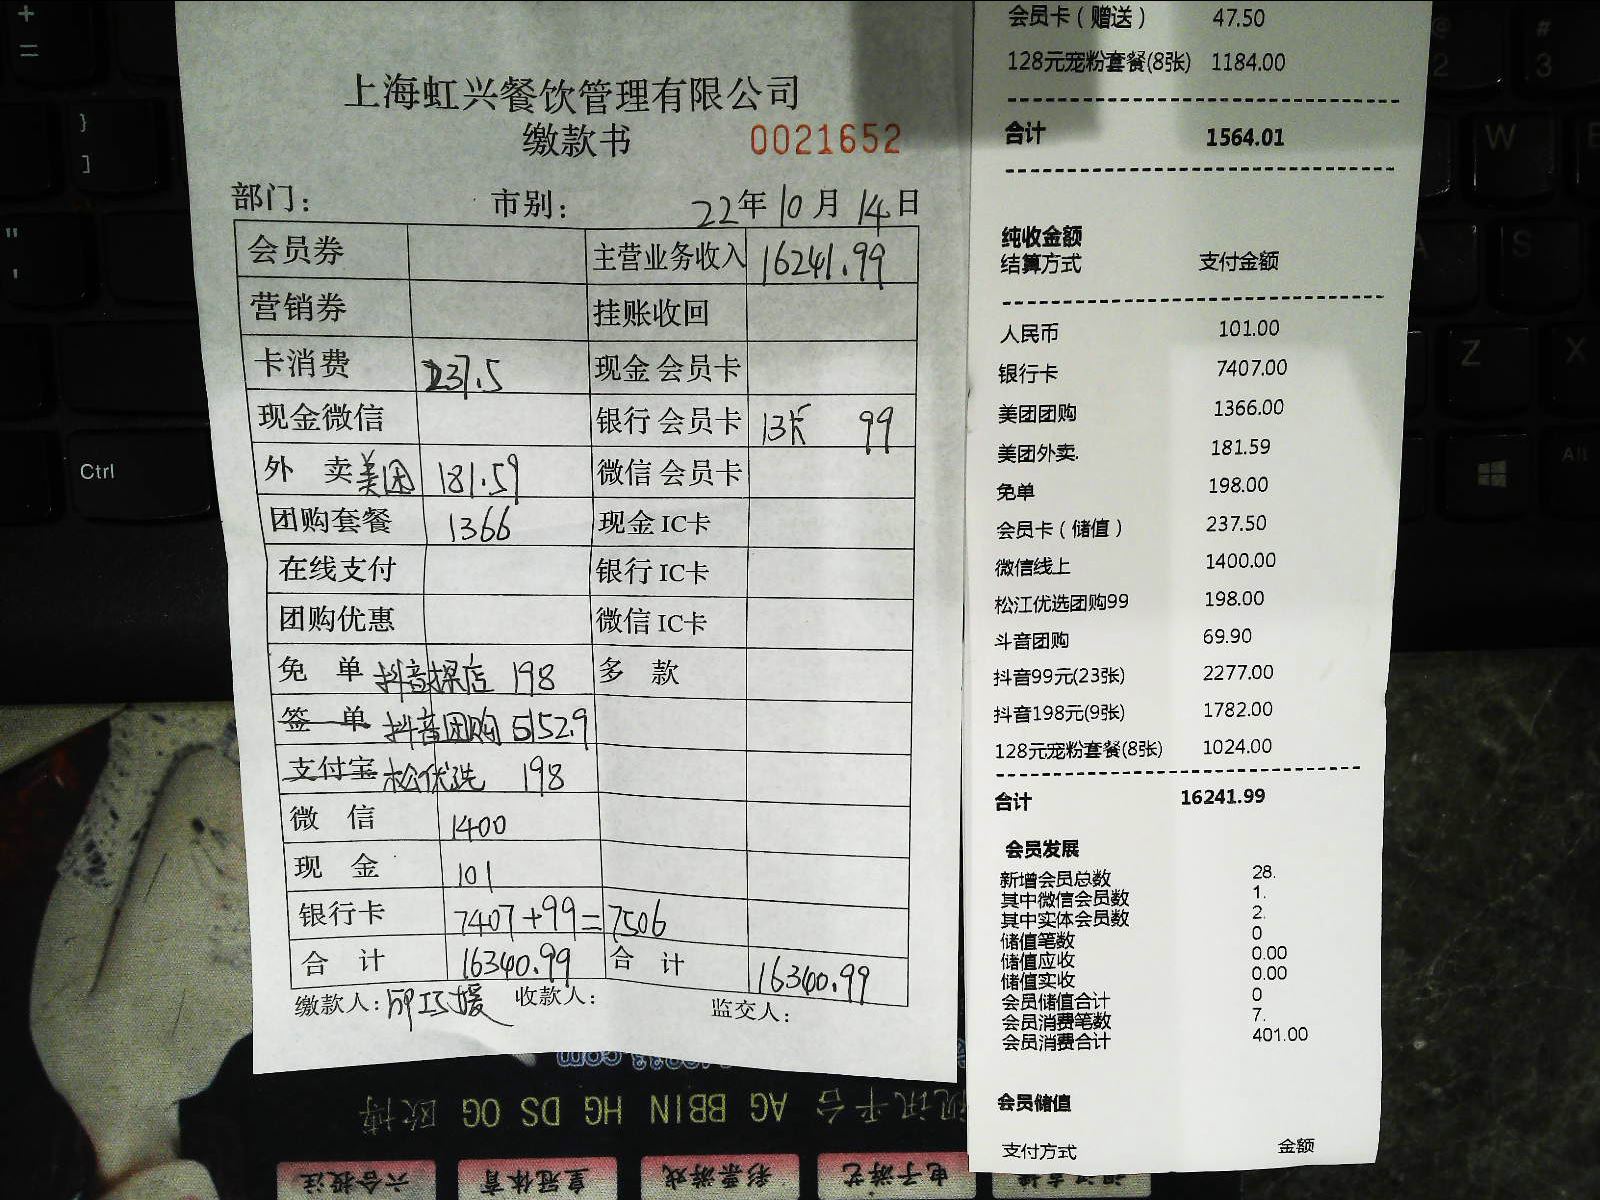 上海虹兴餐饮管理有限公司
缴款书 0021652
部门： 市别： 22年10月14日
会员券 主营业务收入 16241.99
营销券 挂账收回
卡消费 237.5 现金 会员卡
现金微信 银行 会员卡 13张 99
外 卖 美团 181.59 微信 会员卡
团购套餐 1366 现金 IC卡
在线支付 银行 IC卡
团购优惠 微信 IC卡
免 单 抖音探店 198 多 款
签 单 抖音团购 5152.9
支付宝 松优选 198
微 信 1400
现 金 101
银行卡 7407+99=7506
合 计 16340.99 合 计 16340.99
缴款人： 收款人： 监交人：
会员卡（赠送） 47.50
128元宠粉套餐(8张) 1184.00
合计 1564.01
纯收金额
结算方式 支付金额
人民币 101.00
银行卡 7407.00
美团团购 1366.00
美团外卖. 181.59
免单 198.00
会员卡（储值） 237.50
微信线上 1400.00
松江优选团购99 198.00
斗音团购 69.90
抖音99元(23张) 2277.00
抖音198元(9张) 1782.00
128元宠粉套餐(8张) 1024.00
合计 16241.99
会员发展
新增会员总数 28.
其中微信会员数 1.
其中实体会员数 2.
储值笔数 0
储值应收 0.00
储值实收 0.00
会员储值合计 0
会员消费笔数 7.
会员消费合计 401.00
会员储值
支付方式 金额
+
=
}
]
"
'
Ctrl
@
2
#
3
W
E
A
S
Z
X
Alt
视讯平台 AG BBIN HG DS OG 欧博
六合投注
皇冠体育
彩票游戏
电子游艺